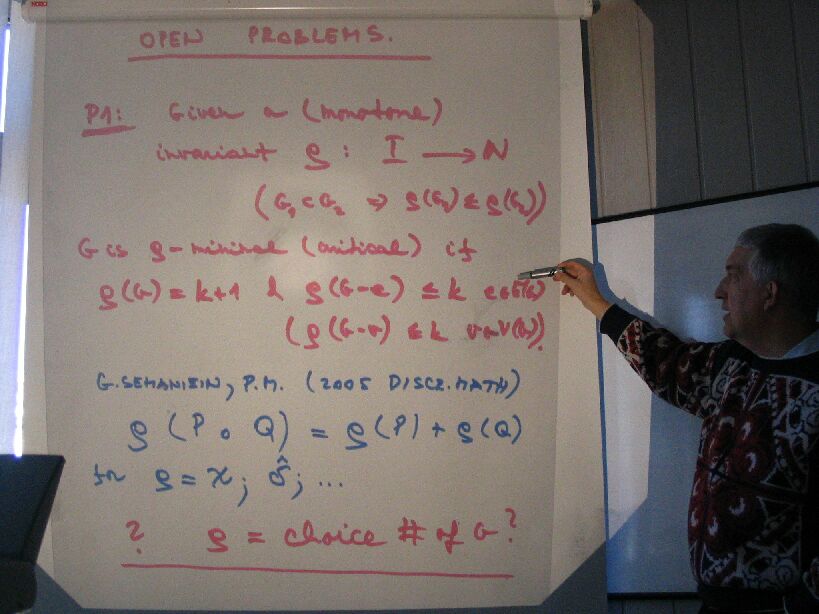 OPEN PROBLEMS.
P1: Given a (monotone)
invariant ϱ : I → N
(G₁ ⊂ G₂ ⇒ ϱ(G₁) ≤ ϱ(G₂))
G is ϱ-minimal (critical) if
ϱ(G) = k+1 & ϱ(G-e) ≤ k e∈E(G)
(ϱ(G-v) ≤ k v∈V(G)).
G. SEMANIŠIN, P.M. (2005 DISCR. MATH)
ϱ(P ∘ Q) = ϱ(P) + ϱ(Q)
for ϱ = χ; δ̂; ...
? ϱ = choice # of G?